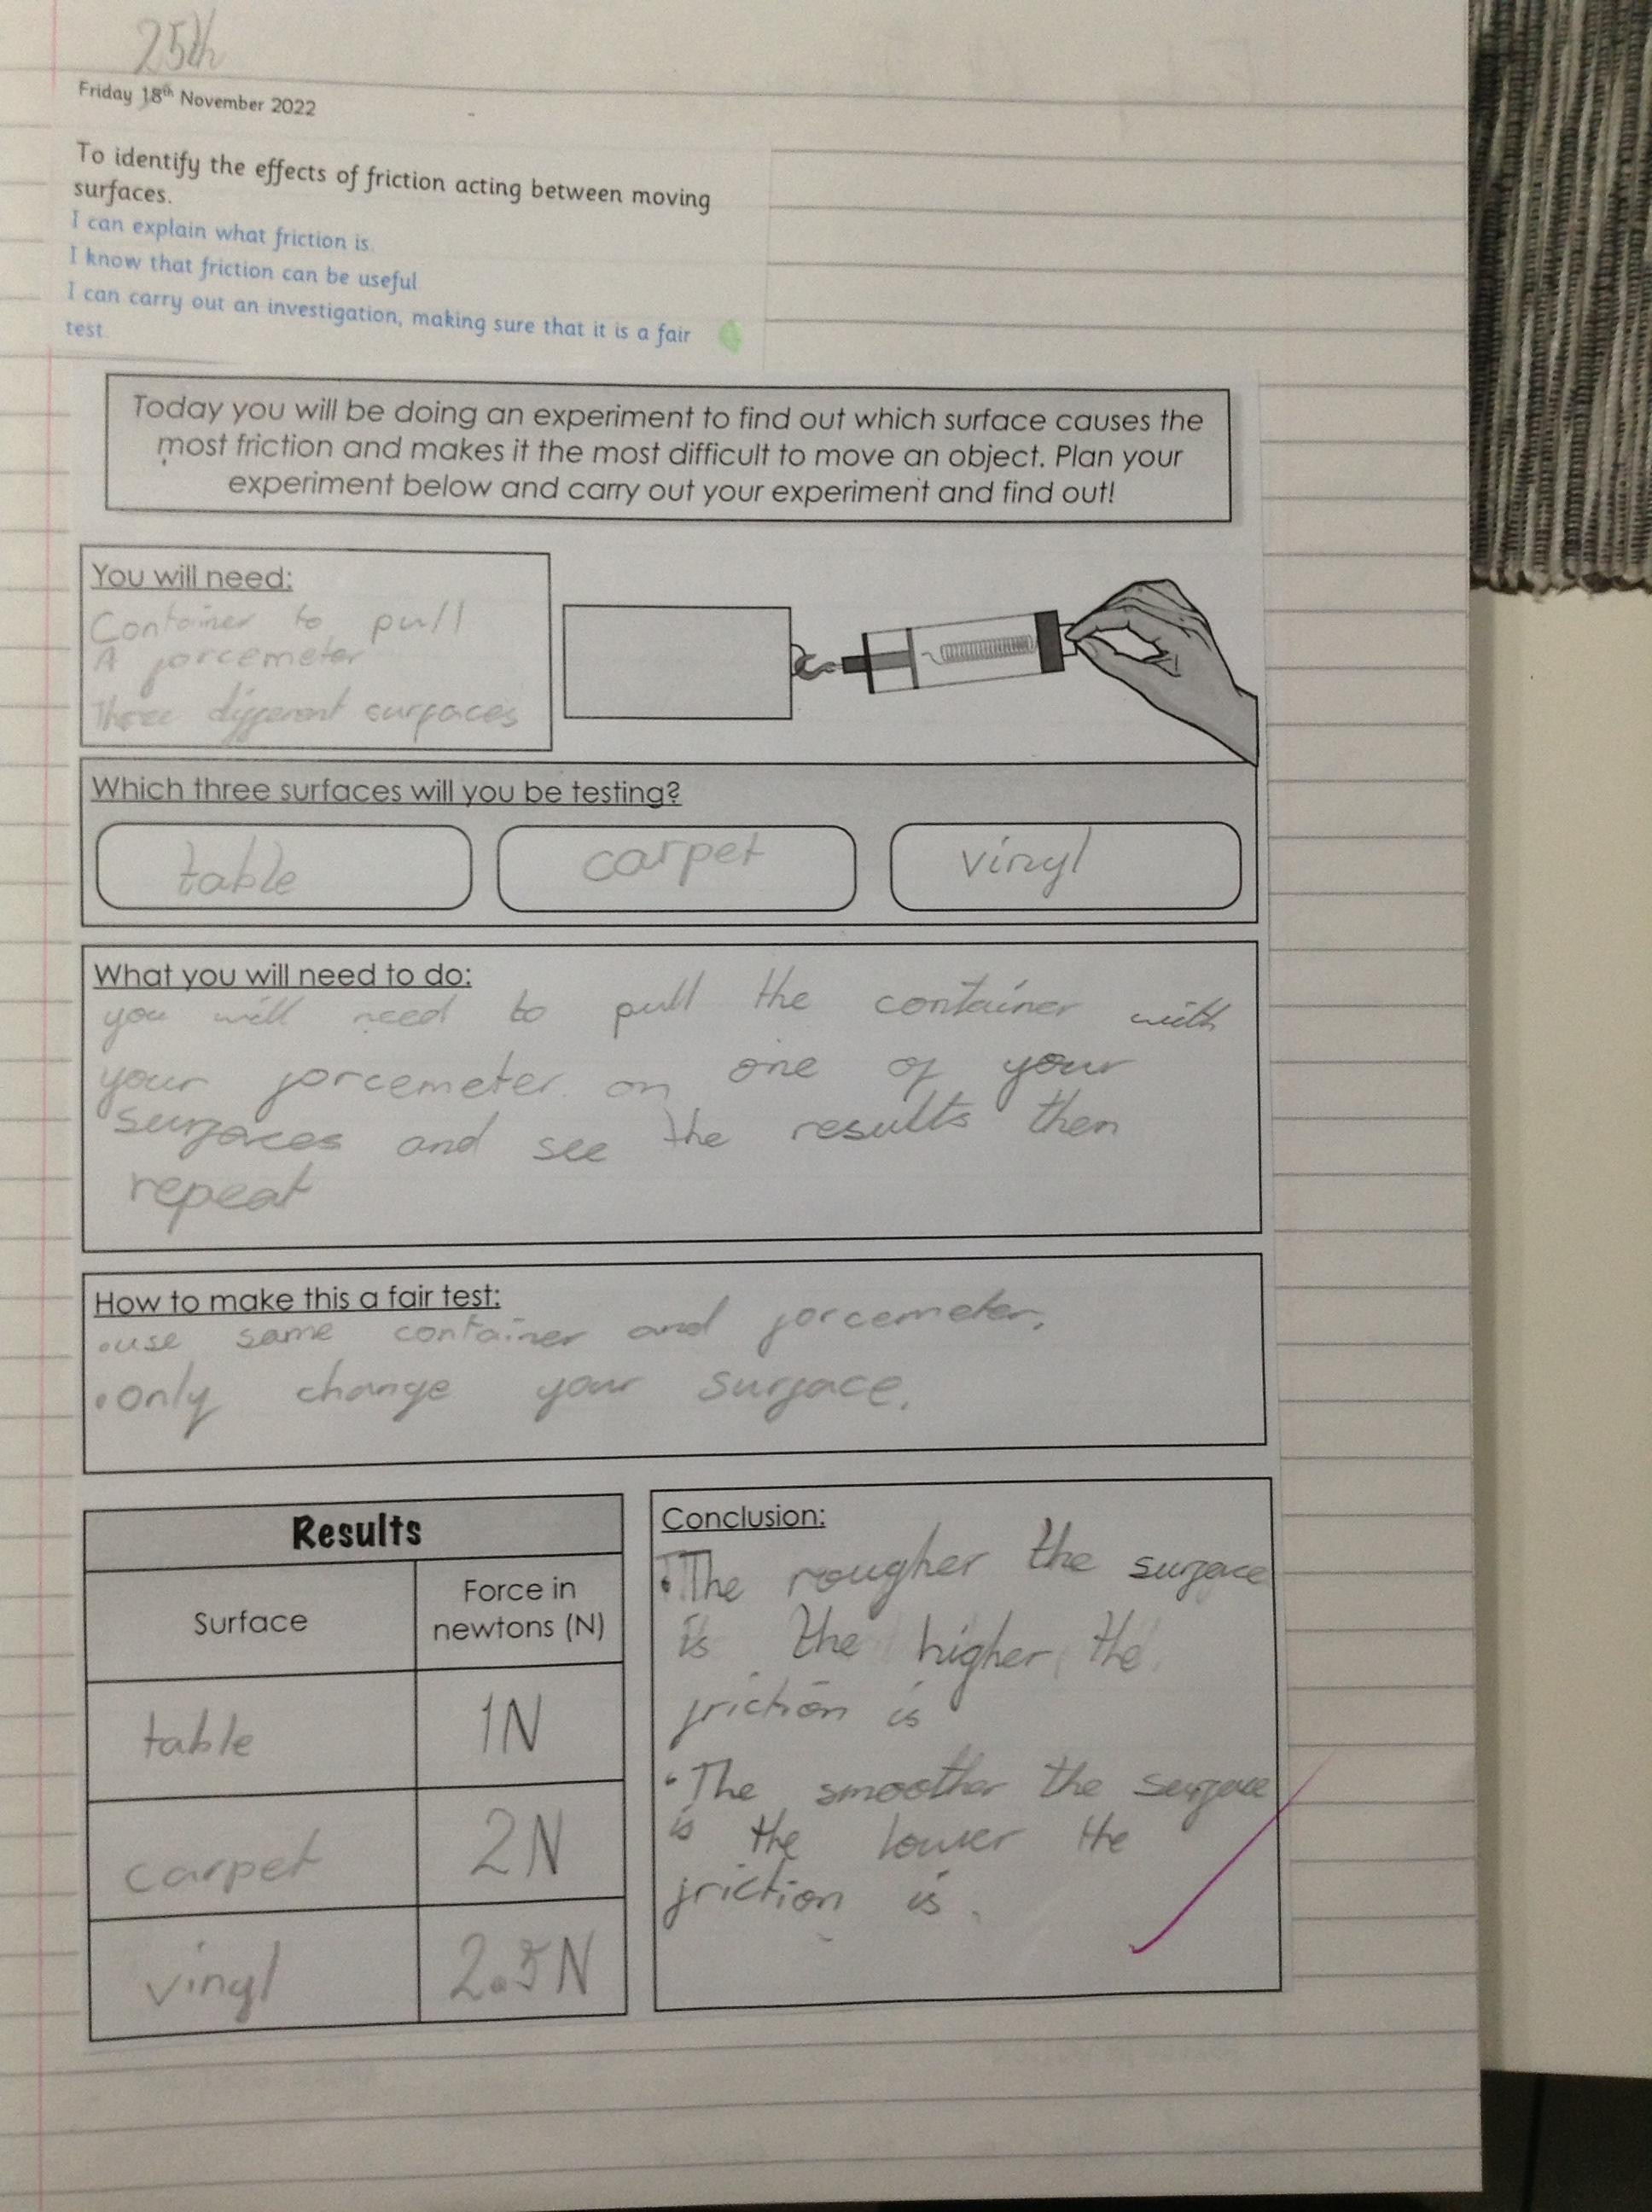 25th
Friday 18th November 2022
To identify the effects of friction acting between moving
surfaces.
I can explain what friction is.
I know that friction can be useful
I can carry out an investigation, making sure that it is a fair
test
Today you will be doing an experiment to find out which surface causes the
most friction and makes it the most difficult to move an object. Plan your
experiment below and carry out your experiment and find out!
You will need:
Container to pull
A forcemeter
Three different surfaces
Which three surfaces will you be testing?
table
carpet
vinyl
What you will need to do:
you will need to pull the container with
your forcemeter on one of your
surfaces and see the results then
repeat
How to make this a fair test:
•use same container and forcemeter.
•only change your surface.
Results
Surface
Force in
newtons (N)
table 1N
carpet 2N
vinyl 2.5N
Conclusion:
•The rougher the surface
is the higher the
friction is
•The smoother the surface
is the lower the
friction is.